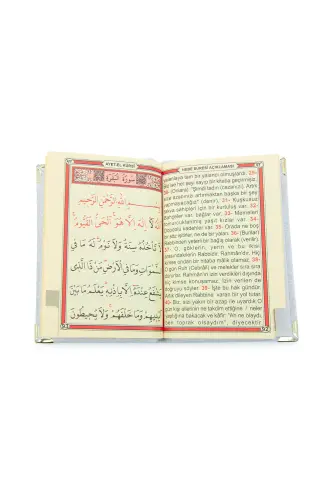 AYET-EL KÜRSİ
سُورَةُ الْبَقَرَةِ
بِسْمِ اللهِ الرَّحْمٰنِ الرَّحِيمِ
اَللهُ لَا اِلٰهَ اِلَّا هُوَ الْحَىُّ الْقَيُّومُ
لَا تَأْخُذُهُ سِنَةٌ وَلَا نَوْمٌ لَهُ مَا فِى
السَّمٰوَاتِ وَمَا فِى الْاَرْضِ مَنْ ذَا الَّذِى
يَشْفَعُ عِنْدَهُ اِلَّا بِاِذْنِهِ يَعْلَمُ مَا بَيْنَ
اَيْدِيهِمْ وَمَا خَلْفَهُمْ وَلَا يُحِيطُونَ
NEBE SURESİ AÇIKLAMASI
tam bir yalancı olmuşlardı. 29-
her şeyi sayıp bir kitaba geçirmişiz.
30- (Onlara) "Şimdi tadın (cezanızı). Artık
size azabınızı artırmaktan başka bir şey
yapmayacağız" (denir). 31- Kuşkusuz
takva sahipleri için bir kurtuluş var. 32-
Bahçeler var, bağlar var. 33-
34-
Dopdolu kadehler var. 35- Orada ne boş
bir söz işitirler, ne de bir yalan. 36- (Bunlar)
Rabbinden yeterli bir bağış olarak (verilir).
37- O, göklerin, yerin ve bu ikisi
arasındakilerin Rabbidir. Rahmân'dır. Hiç
kimse O'nden bir hitaba mâlik olamaz. 38-
O gün Ruh (Cebrâil) ve melekler sıra sıra
Rahman'ın izin verdiklerinden
başka kimse konuşamaz. İzin verilen de
doğruyu söyler. 39- İşte bu hak gündür.
Artık dileyen Rabbine varan bir yol tutar.
40- Biz, sizi yakın bir azap ile uyardık. O
gün kişi ellerinin ne takdim ettiğine
bakacak ve kâfir: "Ah ne olaydı,
ben toprak olsaydım", diyecektir.